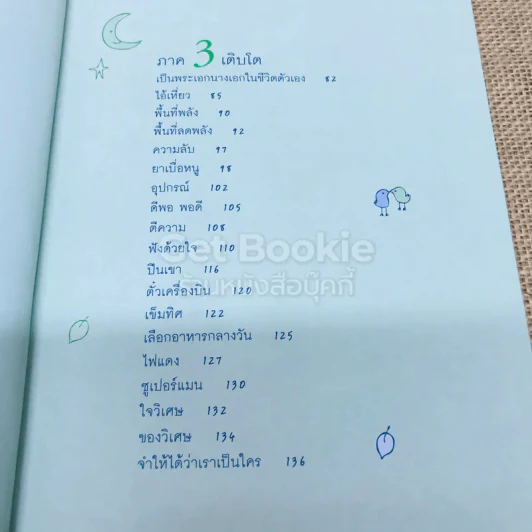 ภาค 3 เติบโต
เป็นพระเอกนางเอกในชีวิตตัวเอง 82
ไอ้เหี่ยว 85
พื้นที่พลัง 90
พื้นที่ลดพลัง 92
ความลับ 97
ยาเบื่อหนู 98
อุปกรณ์ 102
ดีพอ พอดี 105
ตีความ 108
ฟังด้วยใจ 110
Get Bookie
ปีนเขา 116
ร้านหนังสือบุ๊คกี้
ตั๋วเครื่องบิน 120
เข็มทิศ 122
เลือกอาหารกลางวัน 125
ไฟแดง 127
ซูเปอร์แมน 130
ใจวิเศษ 132
ของวิเศษ 134
จำให้ได้ว่าเราเป็นใคร 136